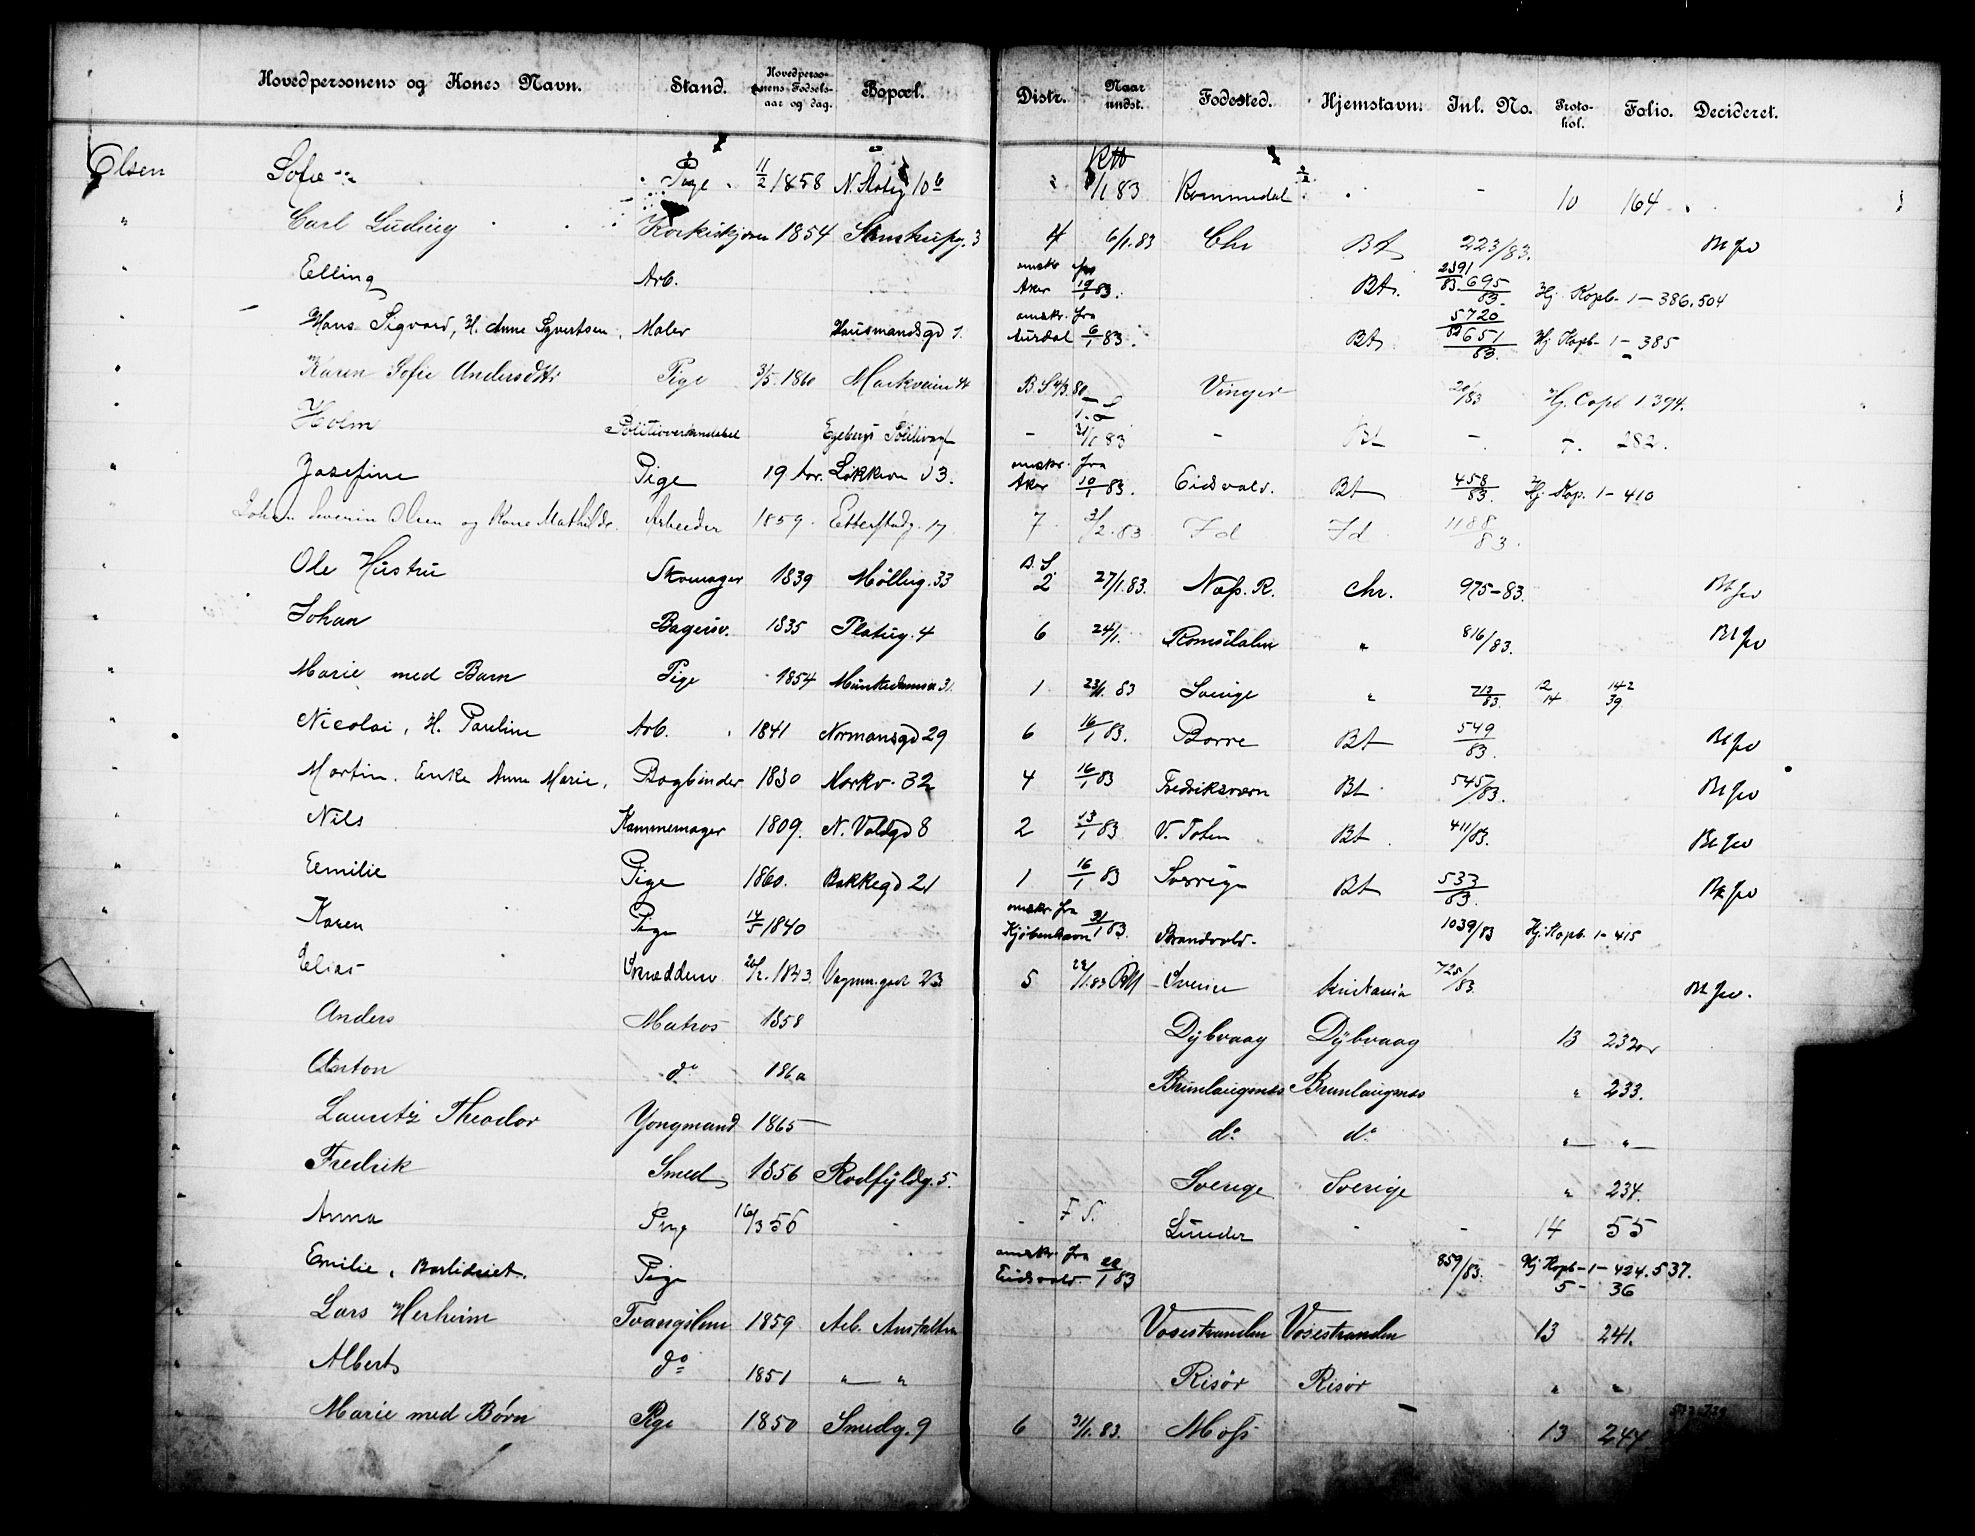 Hovedpersonens og Kones Navn. Stand. Hovedpersonens Fødselsaar og dag. Bopæl. Distr. Naar undst. Fødested. Hjemstavn. Inl. No. Protokol. Folio. Decideret.
Olsen Sofie Pige 11/2 1858 N. Slotsg 10 b 1/1 83 Rommedal - 10 164
" Carl Ludvig 1854 3 4 6/1.83 Chr Bt 223/83.
" Elling Arb. omskr fra Aker 19/1 83. Bt. 2391/83 695/83. Hj. Kopb. 1-386.504
" Hans Sigvard, H. Anne Syvertsen, Maler Hausmandsgd 1. omskr. fra Aurdal 6/1 83. Bt 5720/82 651/83. Hj. Kopb. 1-385
" Karen Sofie Andersdtr Pige 3/5. 1860 Markveien 4 Vinger 20/83 Hj. Copb 1.394.
" Holm Politioverkonstabel Egebergs Politivagt - 31/1 83 - Bt - 282.
" Josefine Pige 19 aar. Løkkevn 3. omskr. fra Aker 10/1 83. Eidsvold. Bt 458/83. Hj. Kop. 1-410
Johan Severin Olsen og Kone Mathilde. Arbeider 1859. Etterstadg. 17 7 3/2.83 Id Id 1188/83.
" Ole Hustru Skomager 1839 Møllerg. 33 B.S. 2 27/1.83. Næs. R. Chr. 975-83.
" Johan Bagersv. 1835 Platug. 4 6 24/1. Romsdalen " 816/83.
" Marie med Barn Pige 1854 Munkedamsv 31. 1 23/1. 83 Sverige " 713/83. 12 14 142 39
" Nicolai, H. Pauline Arb. 1841 Normansgd 29 6 16/1 83. Borre Bt 549/83.
" Martin. Enke Anne Marie. Bogbinder 1830 Markv. 32 4 16/1 83 Fredriksværn Bt 545/83.
" Nils Kammemager 1809. N. Voldgd 8 2 13/1 83 V. Toten Bt 411/83.
" Emilie Pige 1860. Bakkegd 21 1 16/1 83 Sverrige Bt 533/83.
" Karen Pige 14/5 1840 omskr. fra Kjøbenhavn 31/1 83. Brandvold. 1039/83 Hj. Kopb. 1-415
Elias Skrædder 26/2. 1843 Vognm.gad 23 5 22/1.83 Sverige Kristiania 725/83.
Anders Matros 1858 Dybvaag Dybvaag 13 232
Anton do 1860 Brunlaugnæs Brunlaugnæs " 233.
" Lauritz Theodor Yngmand 1865 do do " "
" Fredrik Smed 1856 Rodfyldg. 5. Sverige Sverige " 234.
" Anna Pige 16/3 56 - - F S. Lunder - - 14 55
" Emilie, Pige omskr. fra Eidsvold. 22/1 83 859/83. Hj. Kopb-1-424.537.
5- 36
" Lars Herheim Tvangslem 1859 Arb. Anstalten Vossestranden Vossestranden 13 241.
" Albert do 1851 " " Risør Risør " "
" Marie med Børn Pige 1850 Smedg. 9 6 31/1. 83. Moss 13 244